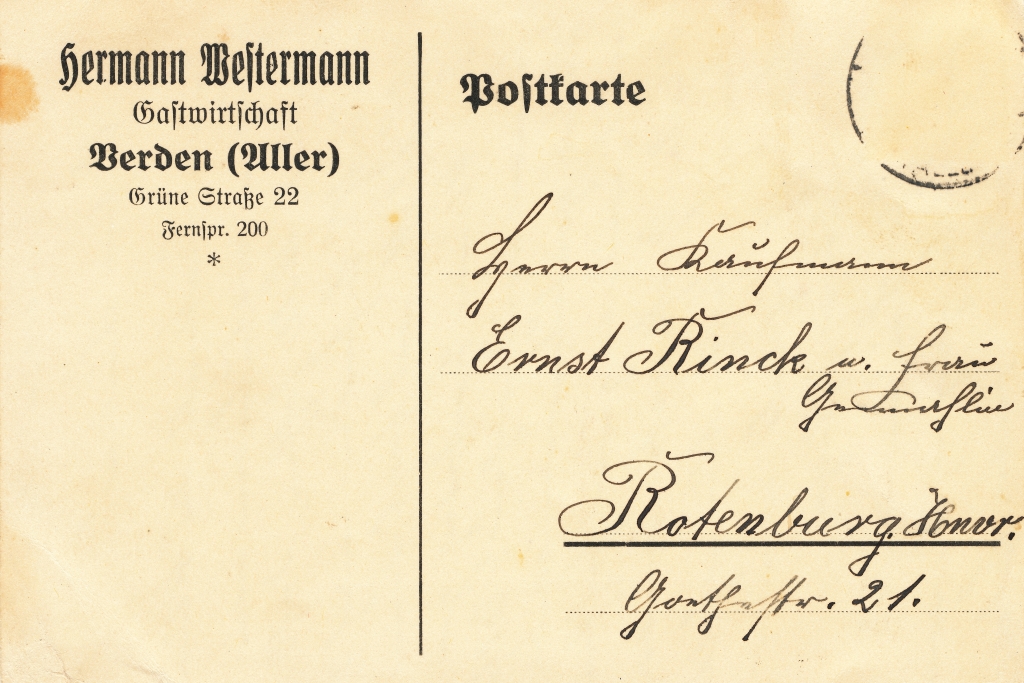 Hermann Westermann
Gastwirtschaft
Verden (Aller)
Grüne Straße 22
Fernspr. 200
*
Postkarte
Herrn Kaufmann
Ernst Rinck u. Frau
Gemahlin
Rotenburg. Hnvr.
Goethestr. 21.